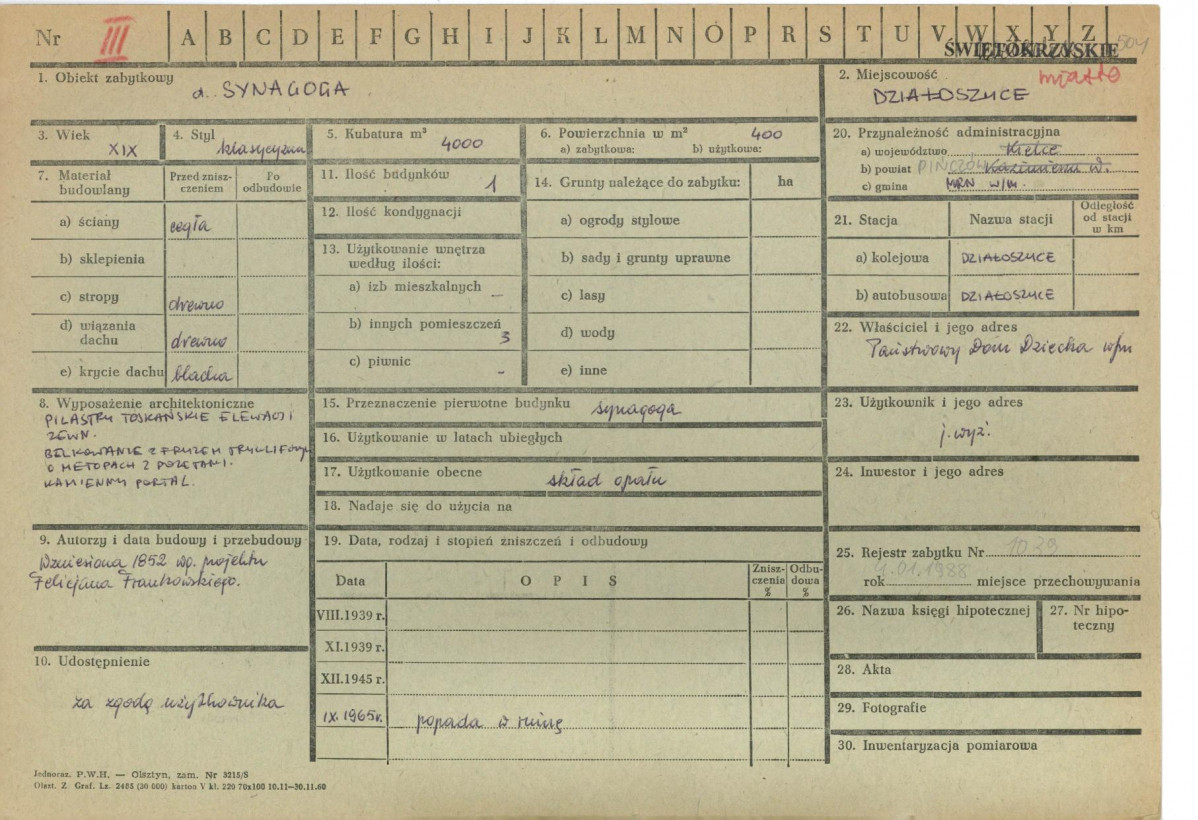 Nr III A B C D E F G H I J K L M N Ó P R S T U V W X Y Z
ŚWIĘTOKRZYSKIE 504
1. Obiekt zabytkowy
d. SYNAGOGA
2. Miejscowość miasto
DZIAŁOSZYCE
3. Wiek
XIX
4. Styl
klasycyzm
5. Kubatura m³
4000
6. Powierzchnia w m² 400
a) zabytkowa: b) użytkowa:
7. Materiał budowlany
Przed znisz-
czeniem
Po
odbudowie
a) ściany cegła
b) sklepienia
c) stropy drewno
d) wiązania
dachu drewno
e) krycie dachu blacha
11. Ilość budynków 1
12. Ilość kondygnacji
13. Użytkowanie wnętrza
według ilości:
a) izb mieszkalnych –
b) innych pomieszczeń
3
c) piwnic -
14. Grunty należące do zabytku: ha
a) ogrody stylowe
b) sady i grunty uprawne
c) lasy
d) wody
e) inne
20. Przynależność administracyjna
a) województwo Kielce
b) powiat PIŃCZÓW Kazimierza W.
c) gmina MRN w/m.
21. Stacja
Nazwa stacji
Odległość
od stacji
w km
a) kolejowa DZIAŁOSZYCE
b) autobusowa DZIAŁOSZYCE
22. Właściciel i jego adres
Państwowy Dom Dziecka w/m
8. Wyposażenie architektoniczne
PILASTRY TOSKAŃSKIE ELEWACJI
ZEWN.
BELKOWANIE Z FRYZEM TRYGLIFOWYM
O METOPACH Z ROZETAMI.
KAMIENNY PORTAL.
15. Przeznaczenie pierwotne budynku synagoga
16. Użytkowanie w latach ubiegłych
17. Użytkowanie obecne skład opału
18. Nadaje się do użycia na
23. Użytkownik i jego adres
j. wyż.
24. Inwestor i jego adres
9. Autorzy i data budowy i przebudowy
Wzniesiona 1852 wg. projektu
Felicjana Frankowskiego.
19. Data, rodzaj i stopień zniszczeń i odbudowy
Data
O P I S
Znisz-
czenia
%
Odbu-
dowa
%
VIII.1939 r.
XI.1939 r.
XII.1945 r.
IX.1965r. popada w ruinę
25. Rejestr zabytku Nr 1029
rok 4.01.1988 miejsce przechowywania
26. Nazwa księgi hipotecznej
27. Nr hipo-
teczny
28. Akta
29. Fotografie
30. Inwentaryzacja pomiarowa
10. Udostępnienie
za zgodą użytkownika
Jednoraz. P.W.H. — Olsztyn, zam. Nr 3215/S
Olszt. Z Graf. Lz. 2485 (30 000) karton V kl. 220 70x100 10.11—30.11.60